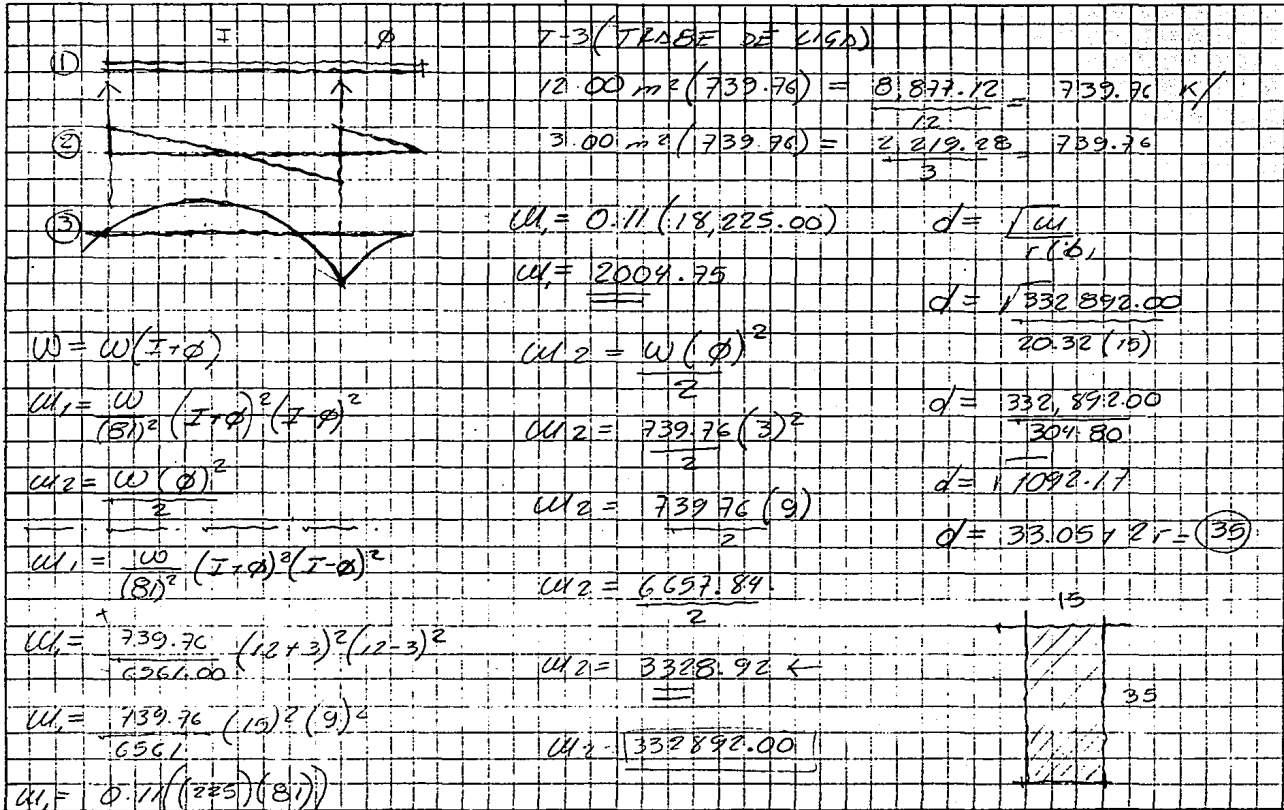 I ø
①
②
③
W = W(I+ø)
M₁ = W/(8I)² (I+ø)² (I-ø)²
M2 = W(ø)²/2
M₁ = W/(8I)² (I+ø)² (I-ø)²
M₁ = 739.76/6561.00 (12+3)² (12-3)²
M₁ = 739.76/6561 (15)² (9)²
M₁ = 0.11((225)(81))
T-3 (TRABE DE LIGA)
12.00 m² (739.76) = 8,877.12/12 = 739.76 K/
3.00 m² (739.76) = 2,219.28/3 = 739.76
M₁ = 0.11 (18,225.00)
M₁ = 2004.75
M2 = W(ø)²/2
M2 = 739.76 (3)²/2
M2 = 739.76 (9)/2
M2 = 6657.84/2
M2 = 3328.92 ←
M2 = 332892.00
d = √M/r(b)
d = √332 892.00/20.32 (15)
d = 332,892.00/304.80
d = √1092.17
d = 33.05 + 2r = 35
15
35